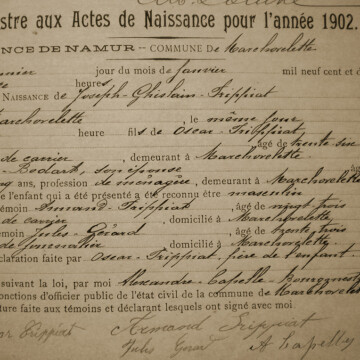 stre aux Actes de Naissance pour l'année 1902.
NCE DE NAMUR — COMMUNE DE Marchovelette
jour du mois de Janvier mil neuf cent d
heures
NAISSANCE de Joseph-Ghislain-Frippiat
archovelette le même jour
heure fils de Oscar-Frippiat
âgé de trente six
de carrier, demeurant à Marchovelette
Rodart, son épouse
ans, profession de ménagère, demeurant à Marchovelette
e l'enfant qui a été présenté a été reconnu être masculin
témoin Armand-Frippiat, âgé de vingt trois
de carrier, domicilié à Marchovelette
témoin Jules-Gérard, âgé de trente trois
de journalier, domicilié à Marchovelette
claration faite par Oscar-Frippiat, père de l'enfant
suivant la loi, par moi Alexandre-Capelle-
onctions d'officier public de l'état civil de la commune de Marchovelette
ture faite aux témoins et déclarant lesquels ont signé avec moi
ar Frippiat Armand Frippiat
Jules Gérard A Capelle